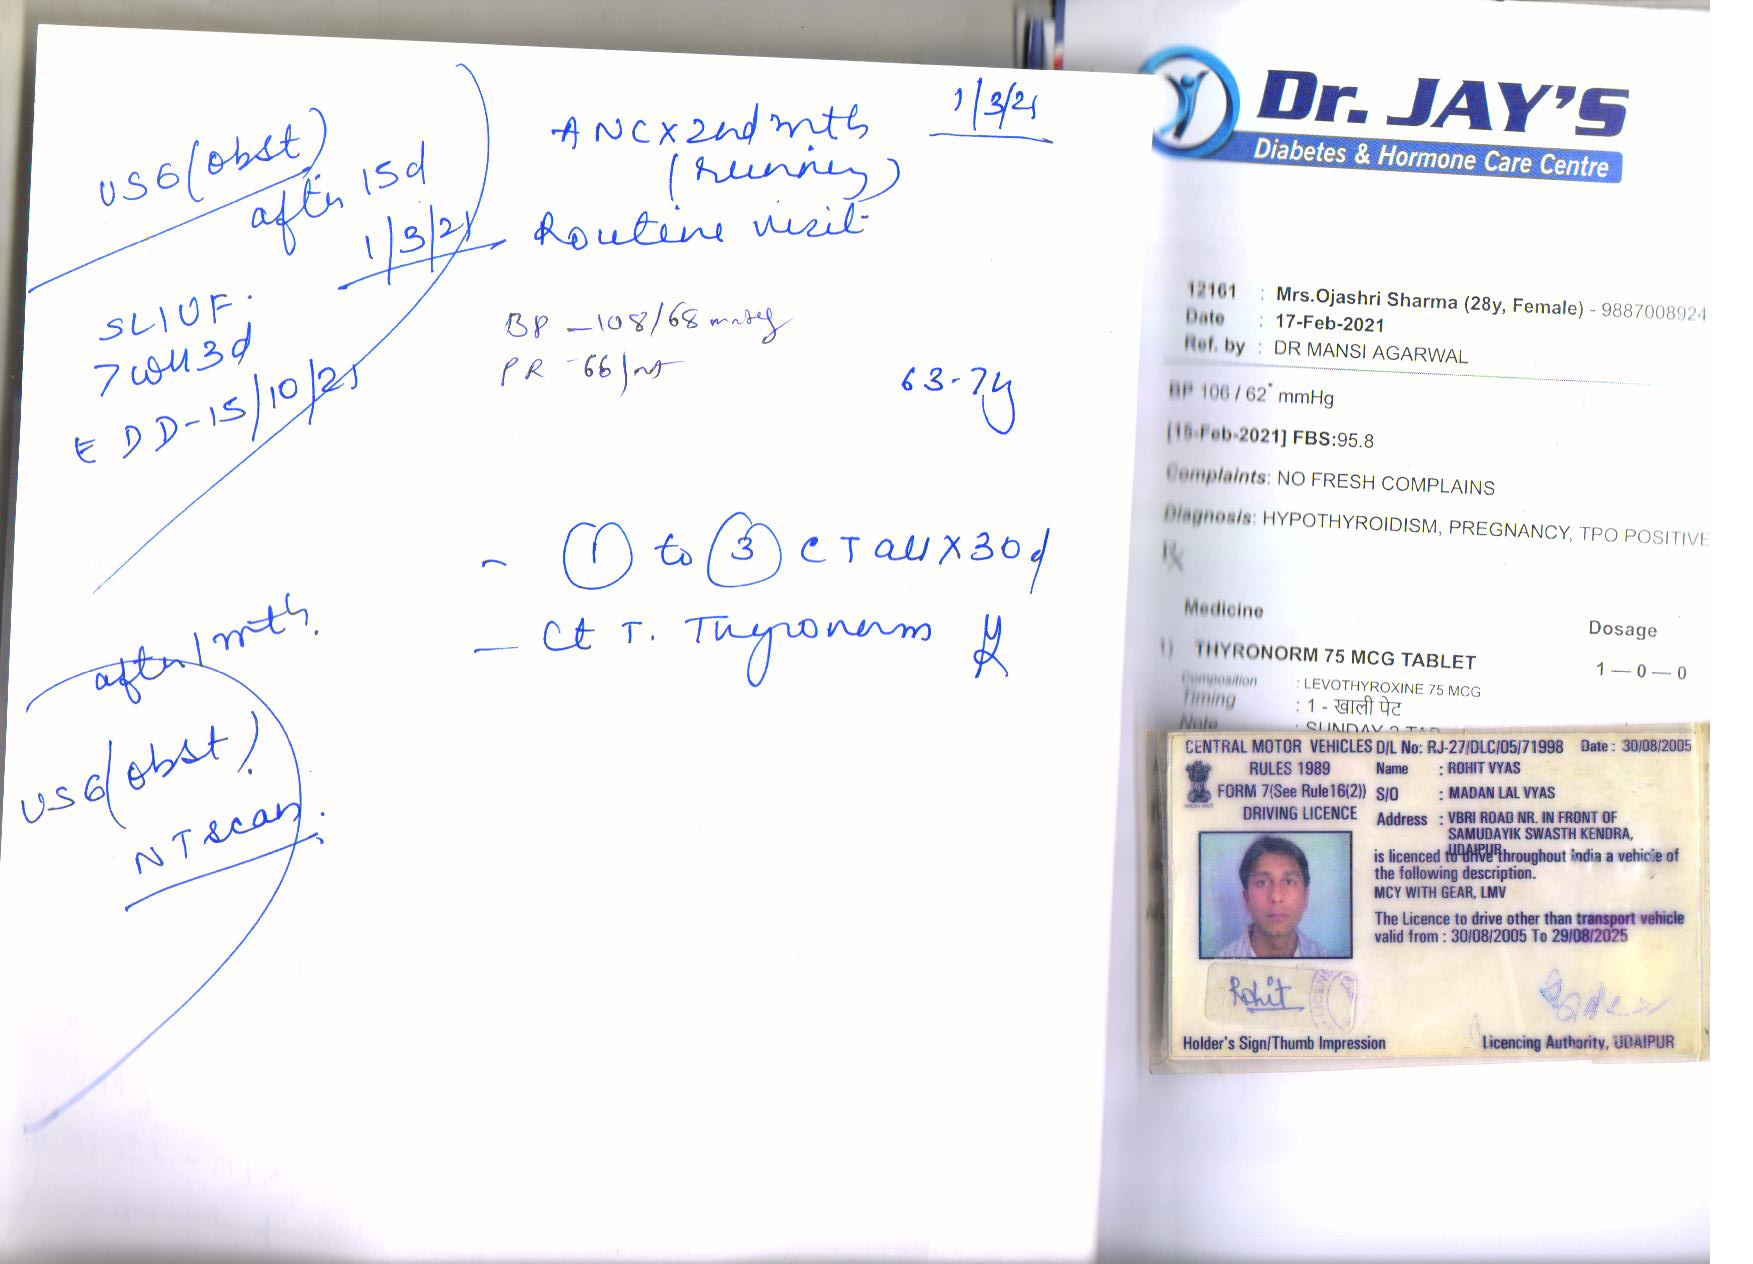 USG (obst)
after 15d
1/3/21
SLIUF.
7wk 3d
EDD-15/10/21
after 1 mth.
USG (obst)
NT scan.
1/3/21
ANC x 2nd mth
(running)
Routine visit
BP - 108/68 mmHg
PR - 66/
63.7
- ① to ③ CT all X 30d
- Ct T. Thyronorm
Dr. JAY'S
Diabetes & Hormone Care Centre
12161 : Mrs.Ojashri Sharma (28y, Female) - 9887008924
Date : 17-Feb-2021
Ref. by : DR MANSI AGARWAL
BP 106 / 62* mmHg
[15-Feb-2021] FBS:95.8
Complaints: NO FRESH COMPLAINS
Diagnosis: HYPOTHYROIDISM, PREGNANCY, TPO POSITIVE
Rx
Medicine Dosage
1) THYRONORM 75 MCG TABLET 1 — 0 — 0
Composition : LEVOTHYROXINE 75 MCG
Timing : 1 - खाली पेट
Note : SUNDAY 2 TAB
CENTRAL MOTOR VEHICLES D/L No: RJ-27/DLC/05/71998 Date : 30/08/2005
RULES 1989 Name : ROHIT VYAS
FORM 7(See Rule16(2)) S/O : MADAN LAL VYAS
DRIVING LICENCE Address : VBRI ROAD NR. IN FRONT OF
SAMUDAYIK SWASTH KENDRA,
UDAIPUR
is licenced to drive throughout india a vehicle of
the following description.
MCY WITH GEAR, LMV
The Licence to drive other than transport vehicle
valid from : 30/08/2005 To 29/08/2025
Rohit
Holder's Sign/Thumb Impression Licencing Authority, UDAIPUR